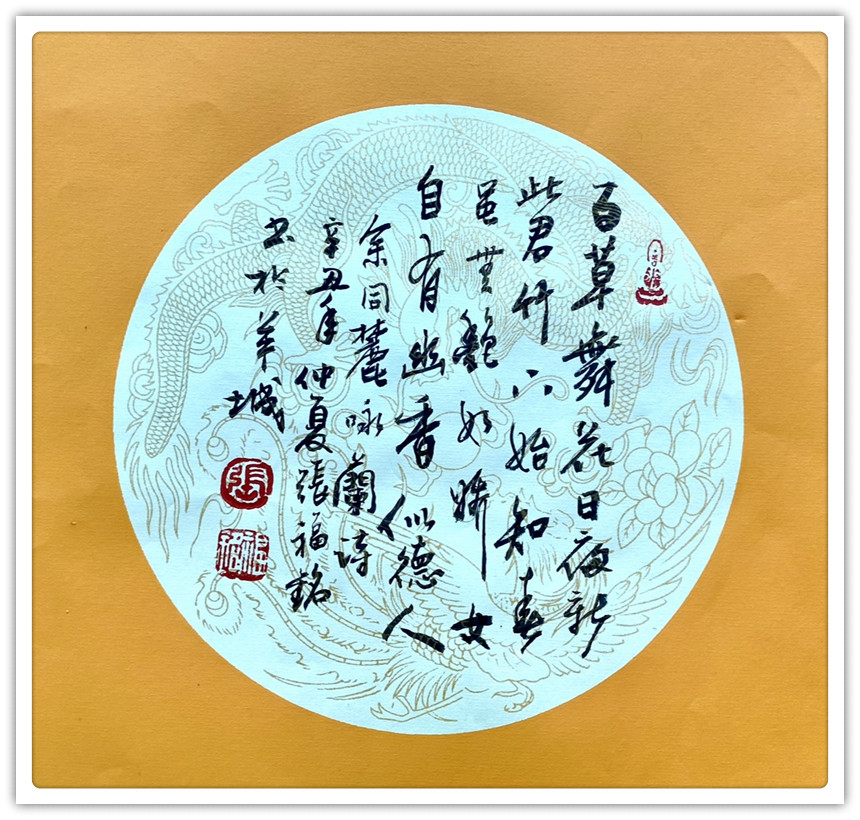 百草舞花日夜新
此君竹下始知春
虽無艷如嬌女
自有幽香似德人
余同麓咏蘭诗
辛丑年仲夏張福銘
书於羊城
張